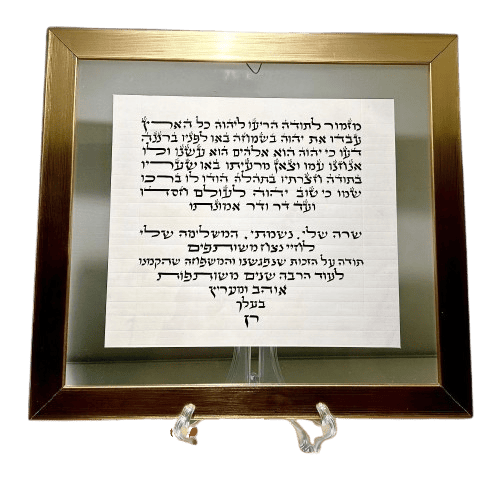 מזמור לתודה הריעו ליהוה כל הארץ
עבדו את יהוה בשמחה באו לפניו ברננה
דעו כי יהוה הוא אלהים הוא עשנו ולו
אנחנו עמו וצאן מרעיתו באו שעריו
בתודה חצרתיו בתהלה הודו לו ברכו
שמו כי טוב יהוה לעולם חסדו
ועד דר ודר אמונתו
שרה שלי, נשמתי, המשלימה שלי
לחיי נצח משותפים
תודה על הזכות שנפגשנו והמשפחה שהקמנו
לעוד הרבה שנים משותפות
אוהב ומעריץ
בעלך
רן